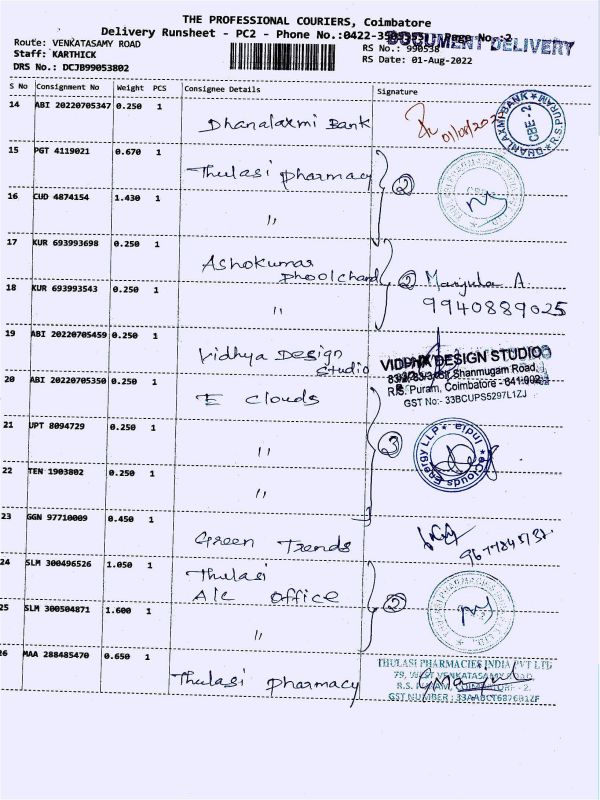 THE PROFESSIONAL COURIERS, Coimbatore
Delivery Runsheet - PC2 - Phone No.:0422- Page No.:2
DOCUMENT DELIVERY
Route: VENKATASAMY ROAD
Staff: KARTHICK
DRS No.: DCJB99053802
RS No.: 990538
RS Date: 01-Aug-2022
S No Consignment No Weight PCS Consignee Details Signature
14 ABI 20220705347 0.250 1 Dhanalaxmi Bank
DHANLAXMI BANK ★ R.S. PURAM ★ CBE - 2
15 PGT 4119021 0.670 1 Thulasi pharmacy
2
16 CUD 4874154 1.430 1 "
17 KUR 693993698 0.250 1 Ashokumar
Phoolchand 2 Manjula A.
18 KUR 693993543 0.250 1 " 9940889025
19 ABI 20220705459 0.250 1 Vidhya Design
Studio
VIDHYA DESIGN STUDIO
Shanmugam Road,
R.S. Puram, Coimbatore - 641 002
GST No:- 33BCUPS5297L1ZJ
20 ABI 20220705350 0.250 1 E clouds
21 UPT 8094729 0.250 1 " 3
eClouds Energy LLP
22 TEN 1903802 0.250 1 "
23 GGN 97710009 0.450 1 Green Trends
24 SLM 300496526 1.050 1 Thulasi
A/c office 2
25 SLM 300504871 1.600 1 "
26 MAA 288485470 0.650 1 Thulasi pharmacy
THULASI PHARMACIES INDIA PVT LTD
79, WEST VENKATASAMY ROAD,
R.S. PURAM, COIMBATORE - 2.
GST NUMBER :